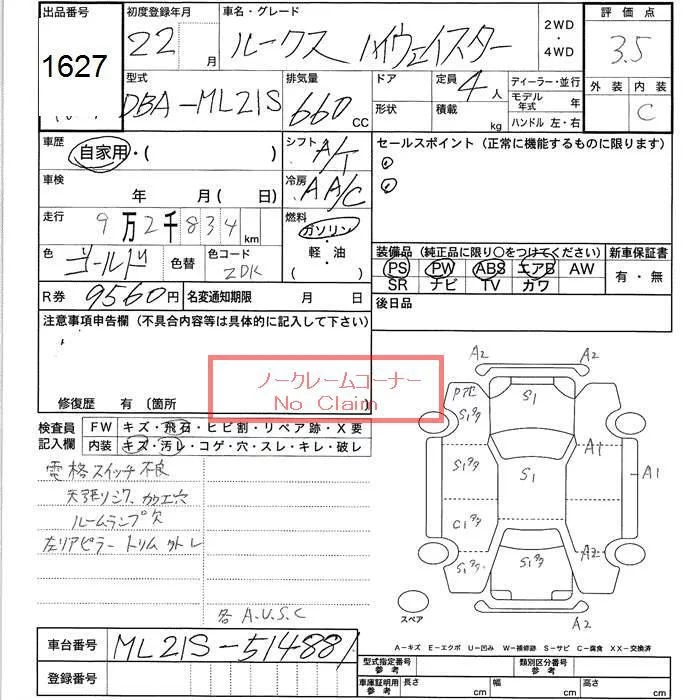 出品番号 初度登録年月 車名・グレード 2WD・4WD 評価点
1627 22 月 ルークス ハイウェイスター 3.5
型式 排気量 ドア 定員 4人 ディーラー・並行 外装 内装
DBA-ML21S 660 CC 形状 積載 kg モデル年式 年 C
ハンドル 左・右
車歴 自家用・( ) シフト A/T セールスポイント (正常に機能するものに限ります)
車検 年 月( 日) 冷房 AA/C
走行 9万2千834 km 燃料 ガソリン・軽油 ( )
色 ゴールド 色替 色コード ZDK
装備品 (純正品に限り○をつけてください) 新車保証書
PS PW ABS エアB AW 有・無
SR ナビ TV カワ
R券 9560円 名変通知期限 月 日 後日品
注意事項申告欄 (不具合内容等は具体的に記入して下さい)
ノークレームコーナー
No Claim
修復歴 有 〔箇所
検査員記入欄 FW キズ・飛石・ヒビ割・リペア跡・X要
内装 キズ・汚レ・コゲ・穴・スレ・キレ・破レ
電格スイッチ不良
天張リシワ、加工穴
ルームランプ欠
左リアピラートリム外レ
各 A.U.S.C
A2 A2
S1
S1
S1
A1 A1
S1
C1
A2
S1
S1
A2
スペア
A-キズ E-エクボ U-凹み W-補修跡 S-サビ C-腐食 XX-交換済
車台番号 ML21S-514881
登録番号
型式指定番号 参考 類別区分番号 参考
車庫証明用 参考 長さ cm 幅 cm 高さ cm